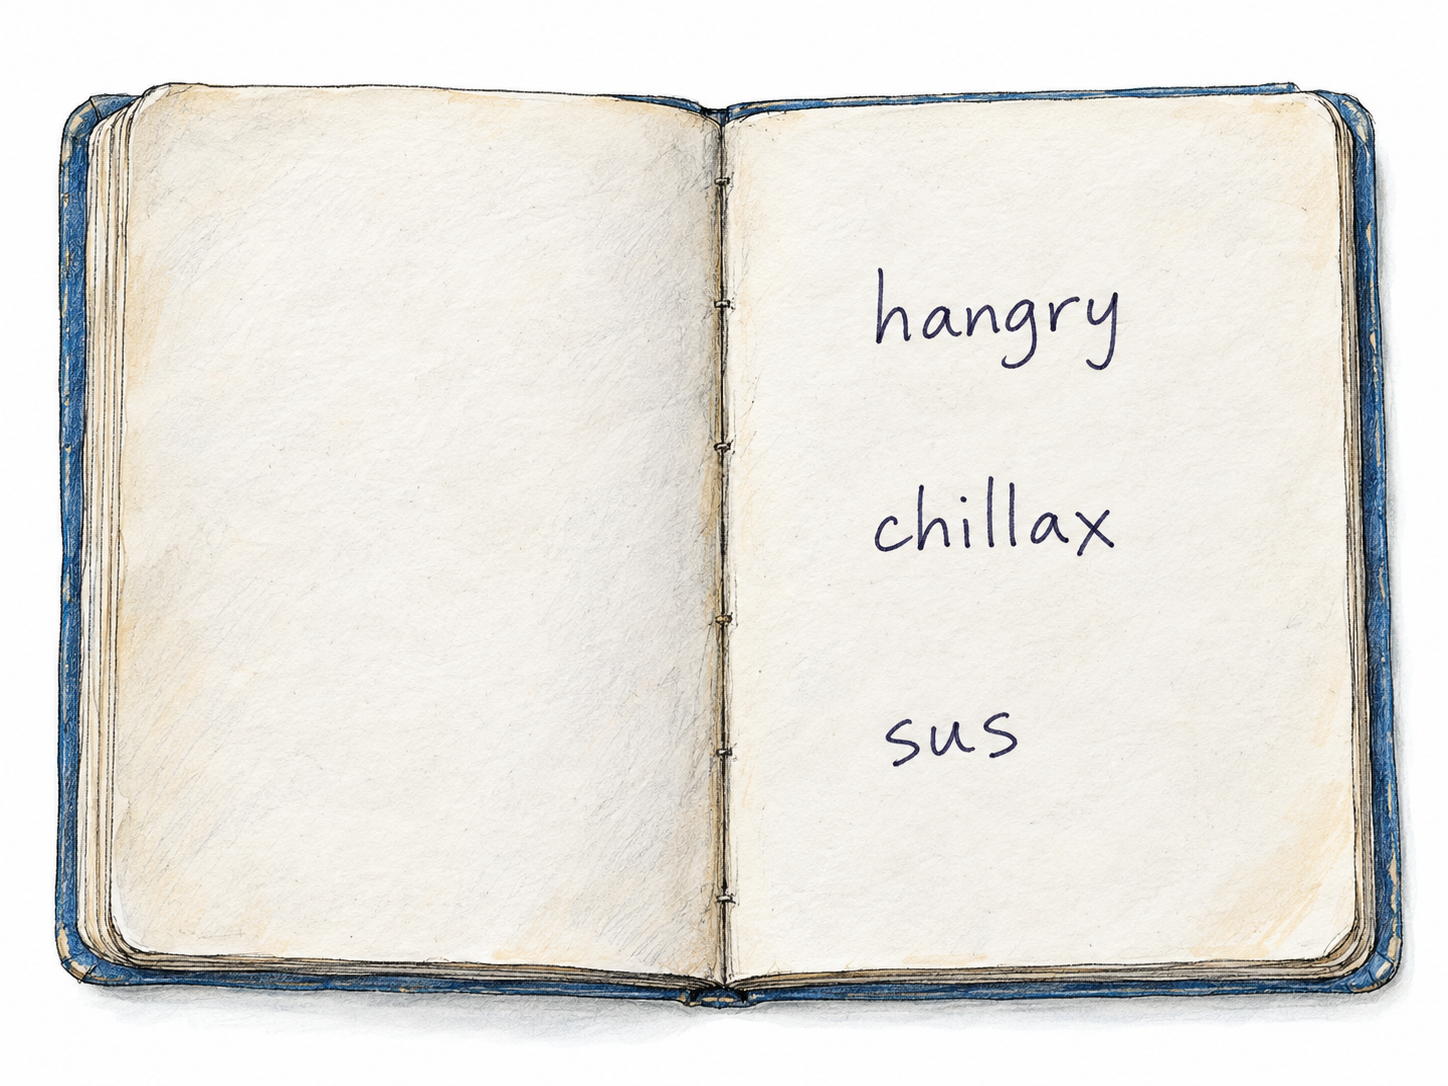 hangry
chillax
sus